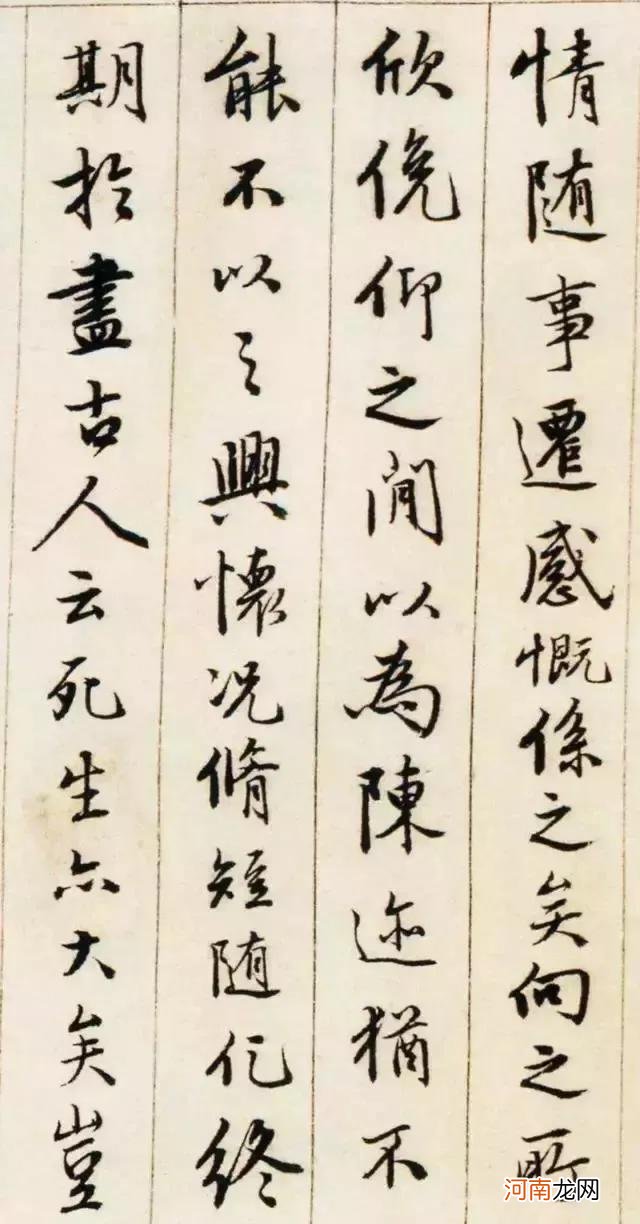 情随事遷感慨係之矣向之所
欣俛仰之間以為陳迹猶不
能不以之興懷况脩短随化終
期於盡古人云死生亦大矣豈
河南龙网